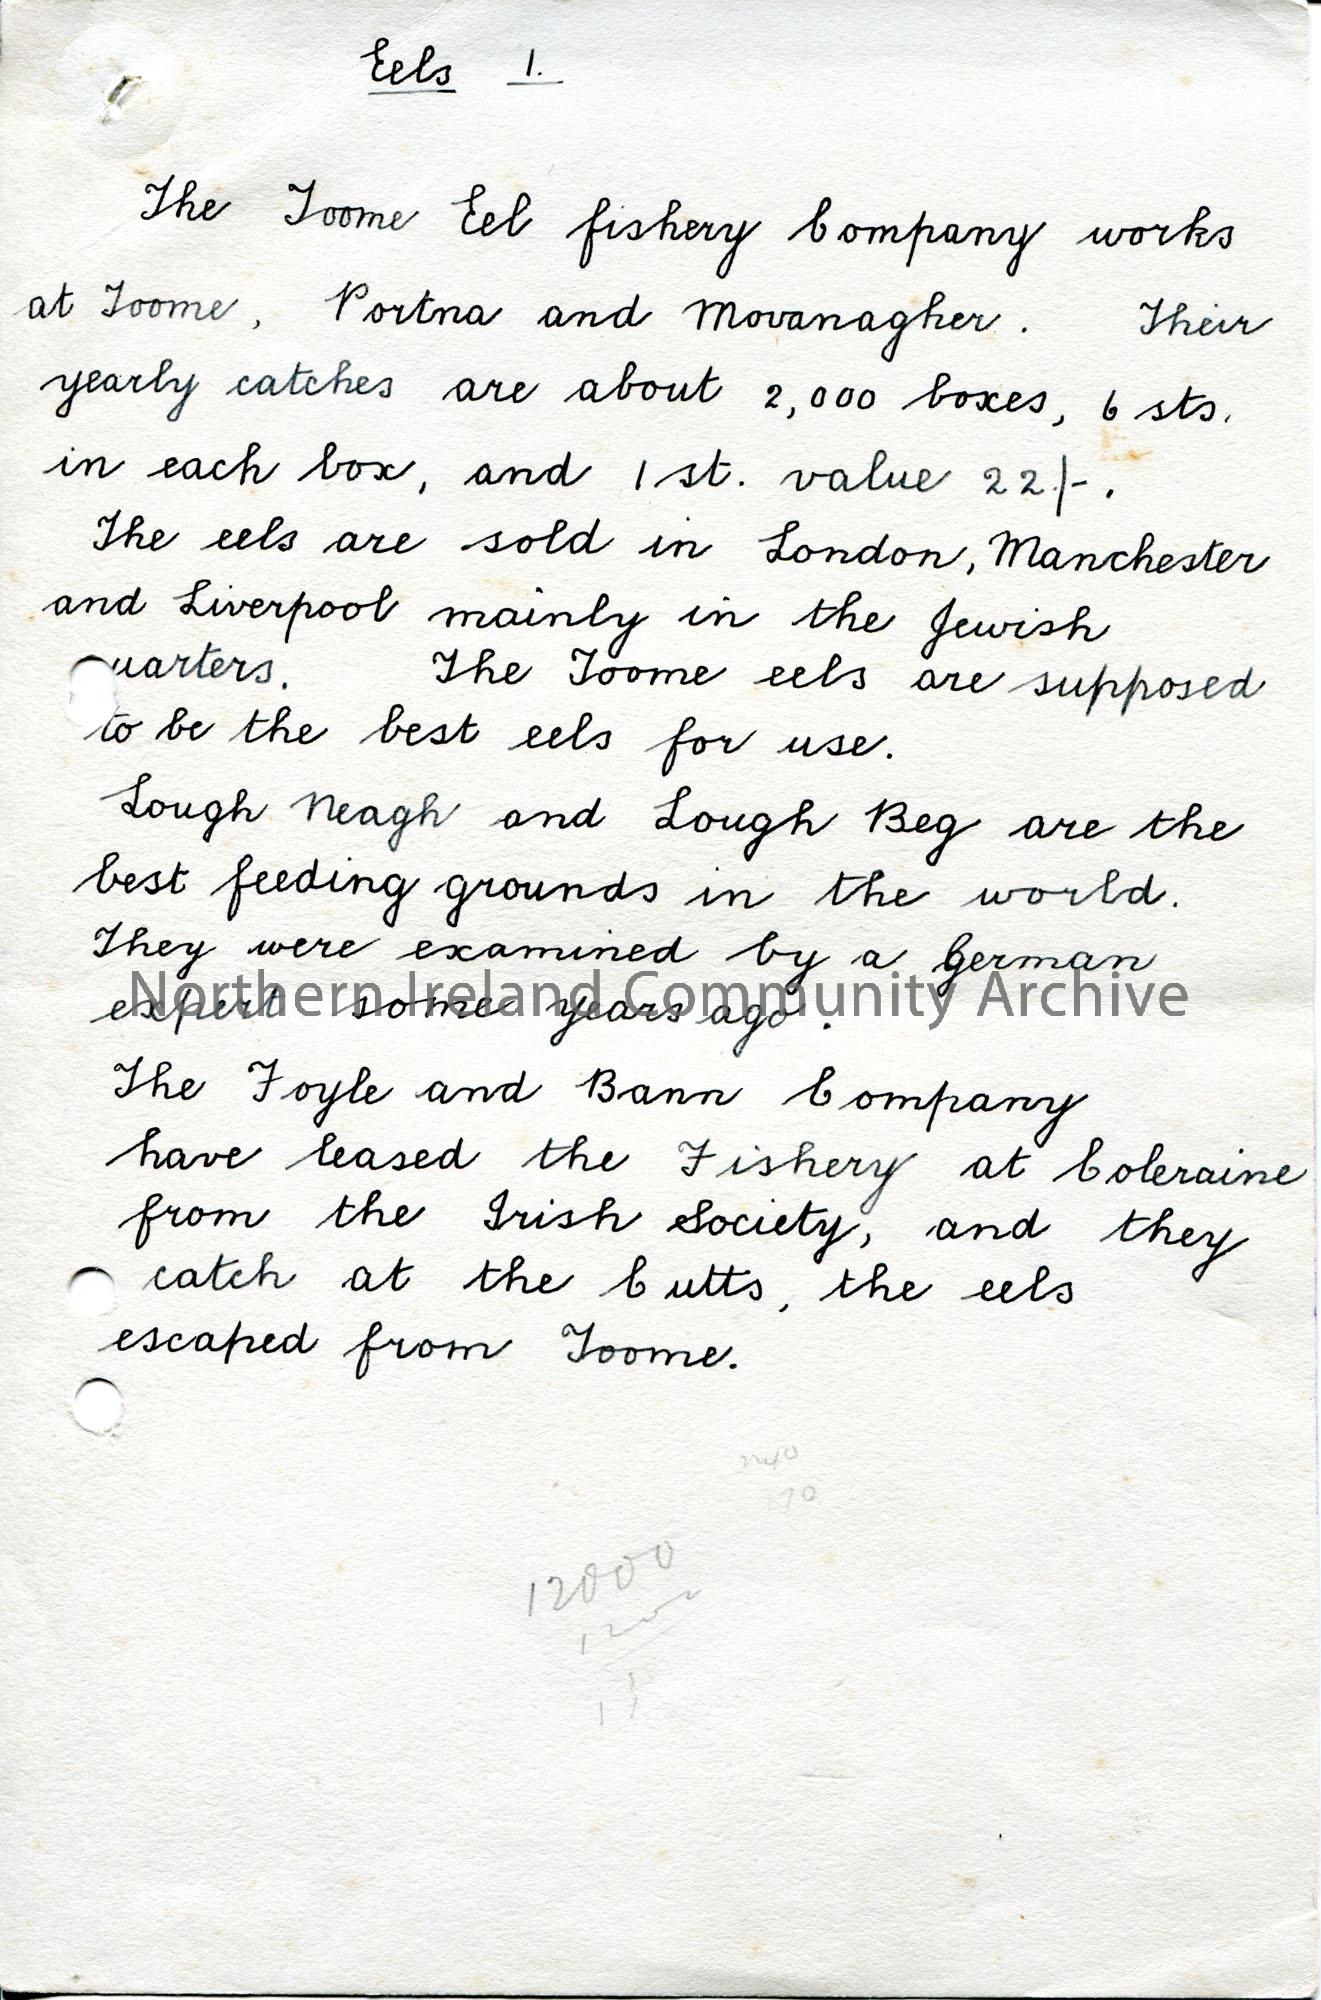 Eels 1.
The Toome Eel fishery Company works
at Toome, Portna and Movanagher. Their
yearly catches are about 2,000 boxes, 6 sts.
in each box, and 1 st. value 22/-.
The eels are sold in London, Manchester
and Liverpool mainly in the Jewish
uarters. The Toome eels are supposed
to be the best eels for use.
Lough Neagh and Lough Beg are the
best feeding grounds in the world.
They were examined by a German
Northern Ireland Community Archive
expert some years ago.
The Foyle and Bann Company
have leased the Fishery at Coleraine
from the Irish Society, and they
catch at the Cutts, the eels
escaped from Toome.
12000